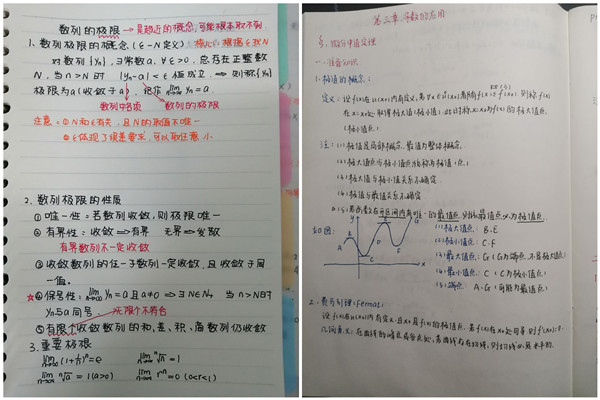 数列的极限 → 是趋近的概念,可能根本取不到
1. 数列极限的概念 (ε-N定义) 核心:根据ε找N
对数列{yn},∃常数a,∀ε>0,总存在正整数
N,当n>N时 |yn-a|<ε恒成立,⇒则称{yn}
极限为a(收敛于a) 记作 lim n→∞ yn=a
数列中各项 数列的极限
注意:①N和ε有关,且N的取值不唯一
②ε体现了误差要求,可以取任意小
2. 数列极限的性质
①唯一性:若数列收敛,则极限唯一
②有界性:收敛⇒有界 无界⇒发散
有界数列不一定收敛
③收敛数列的任一子数列一定收敛,且收敛于同
一值。
☆④保号性:lim n→∞ yn=a且a≠0 ⇒∃N∈N+ 当n>N时
yn与a同号 无限个不符合
⑤有限个收敛数列的和、差、积、商数列仍收敛
3. 重要极限
lim n→∞ (1+1/n)ⁿ=e lim n→∞ ⁿ√n=1
lim n→∞ ⁿ√a=1(a>0) lim n→∞ rⁿ=0 (0<r<1)
第三章 导数的应用
微分中值定理
一、准备知识
1. 极值的概念:
定义:设f(x)在u(x0)内有定义,若∀x∈ů(x0)都有f(x)≤f(x0)则称f(x)
在x=x0处取得极大值(极小值),此时称x=x0为f(x)的极大值点
(极小值点)
注:(1)极值是局部概念,最值为整体概念
(2)极大值点与极小值点统称为极值点
(3)极大值与极小值关系不确定
(4)极值与最值关系不确定
(5)若函数在开区间内有唯一的最值点,则该最值点必为极值点
如图: y A B C D E F G x
(1)极大值点:B.E
(2)极小值点:C.F
(3)最大值点:G (G为端点,不是极大值点)
(4)最小值点:C (C为极小值点)
(5)端点:A、G (可能为最值点)
2. 费马引理(Fermat):
设f(x)在u(x0)内有定义,且x0是f(x)的极值点,若f(x)在x0处可导,则f'(x0)=0
几何意义:在曲线的峰点或谷点处,若曲线存在切线,则切线必是水平的.